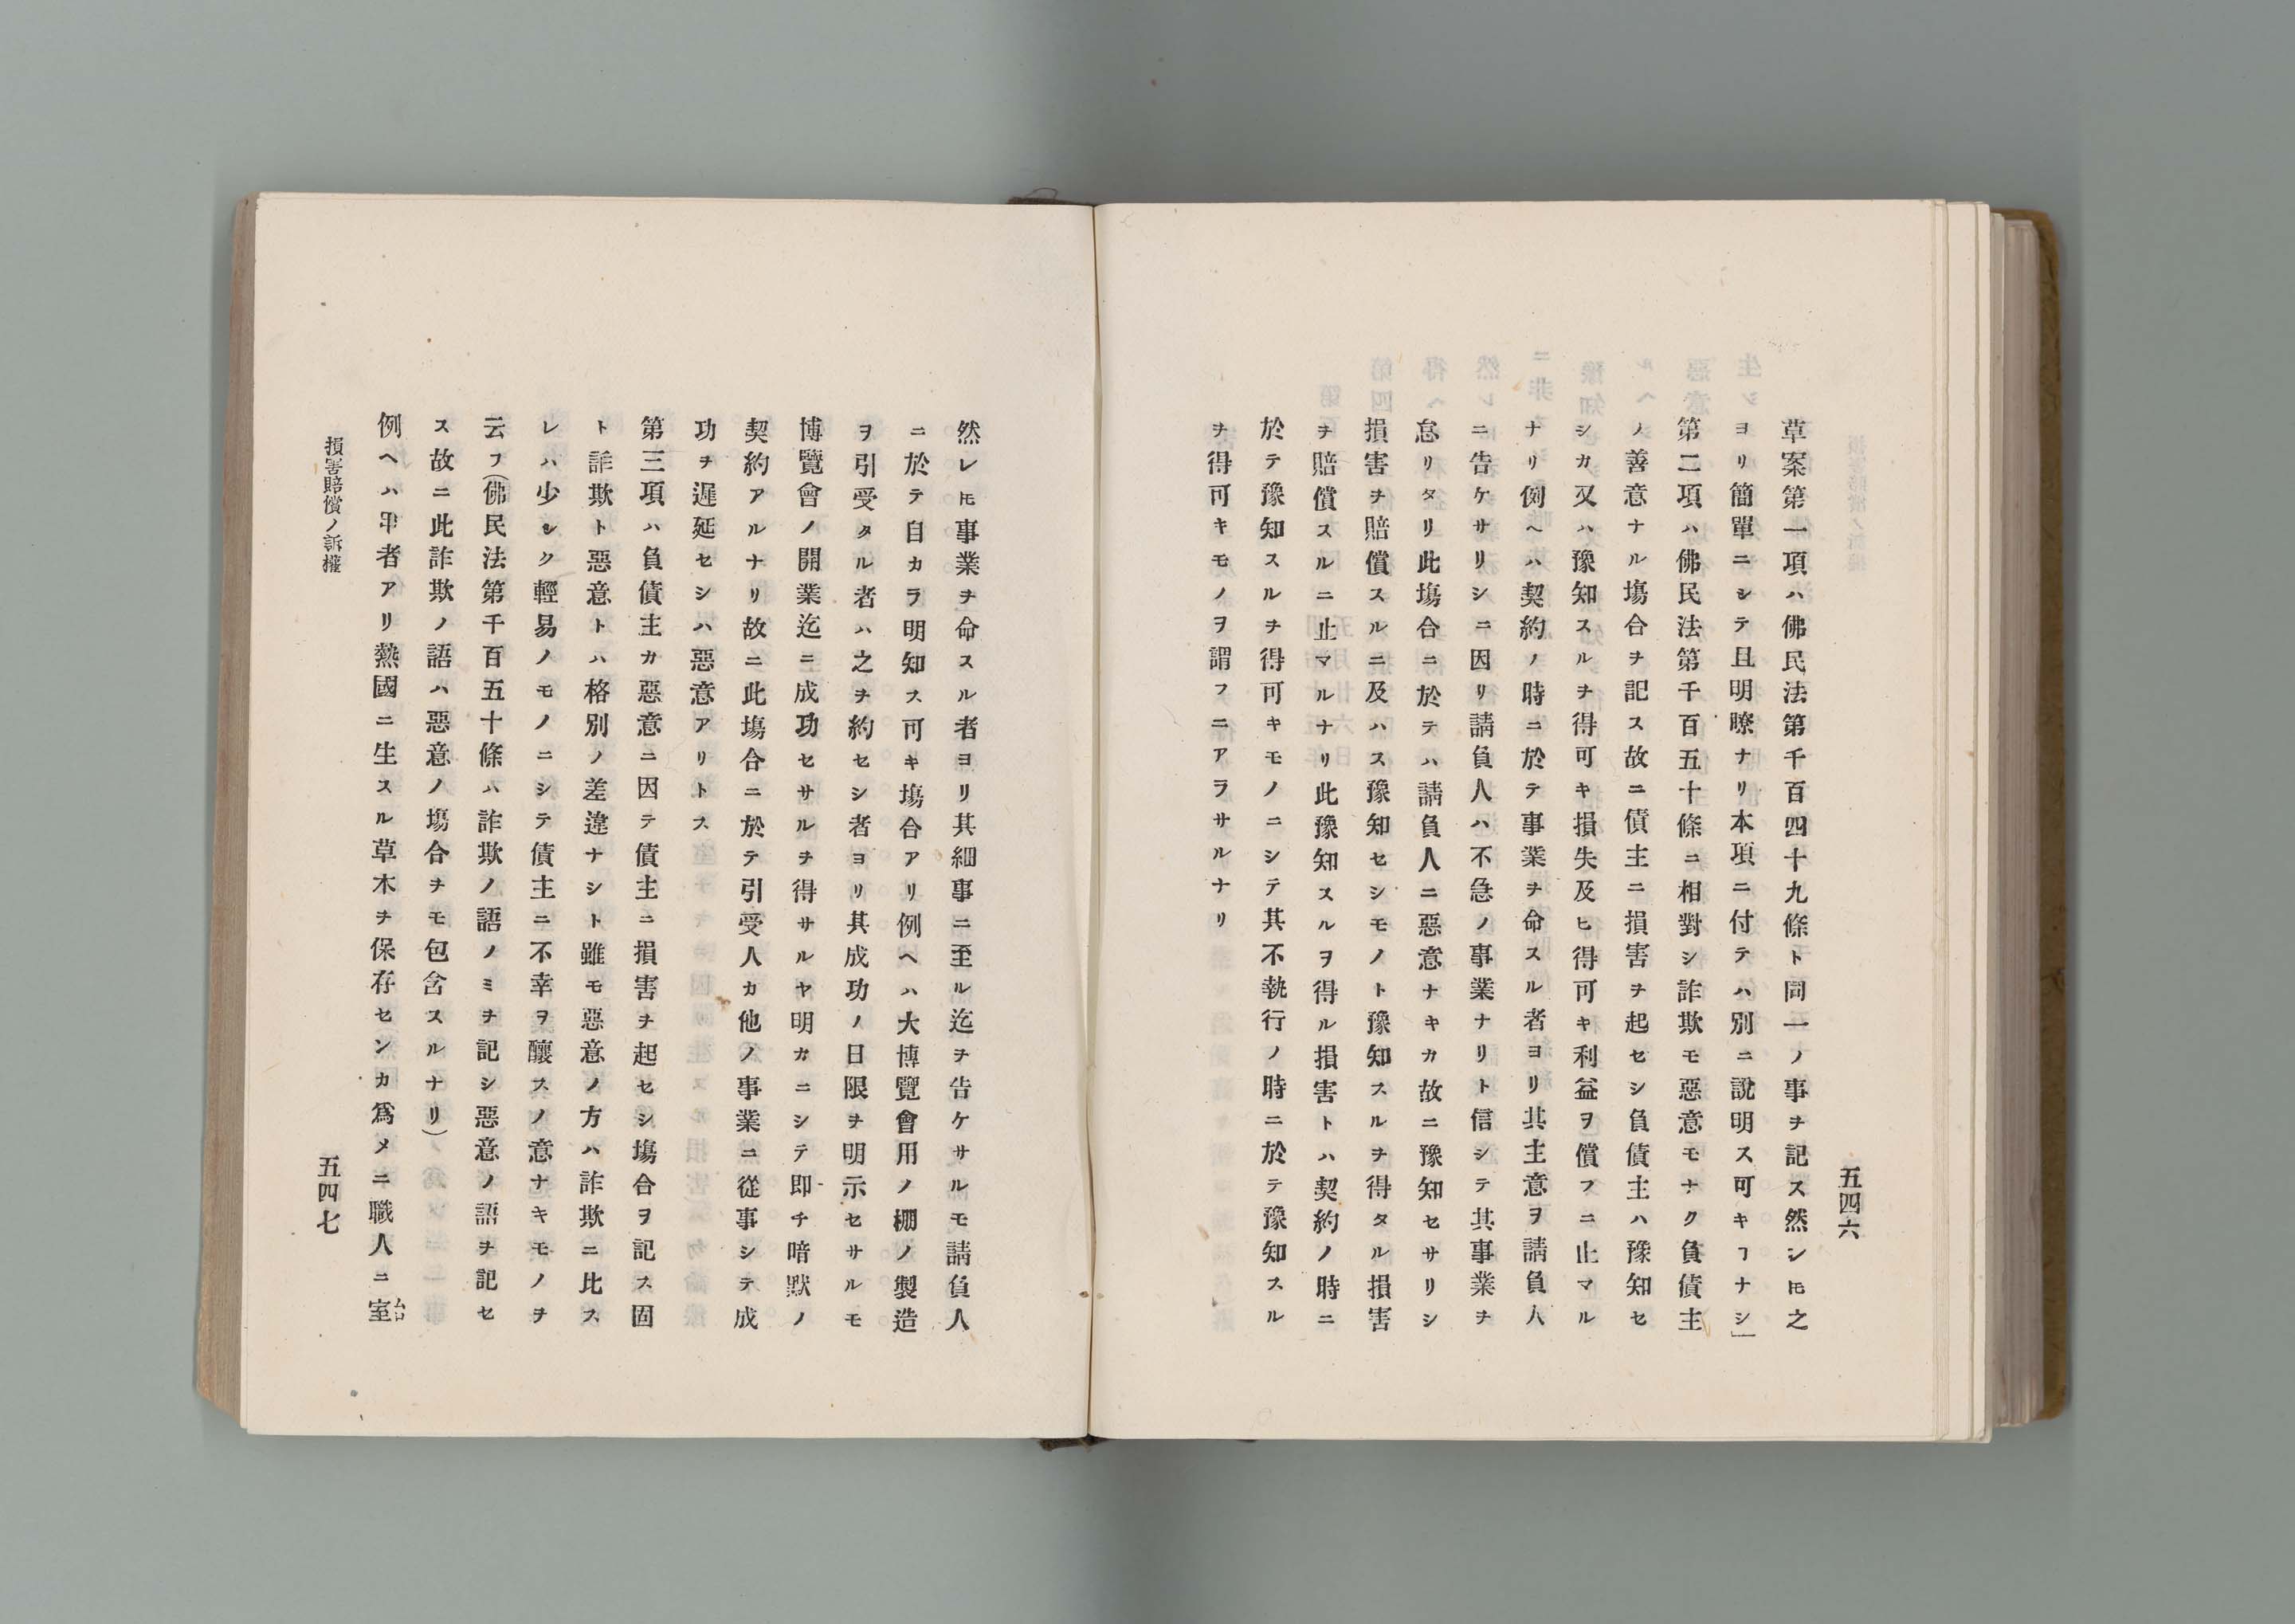 五四六
草案第一項ハ佛民法第千百四十九條ト同一ノ事ヲ記ス然シ𪜈之
ヨリ簡單ニシテ且明瞭ナリ本項ニ付テハ別ニ說明ス可キヿナシ」
第二項ハ佛民法第千百五十條ニ相對シ詐欺モ惡意モナク負債主
ノ善意ナル塲合ヲ記ス故ニ債主ニ損害ヲ起セシ負債主ハ豫知セ
シカ又ハ豫知スルヲ得可キ損失及ヒ得可キ利益ヲ償フニ止マル
ナリ例ヘハ契約ノ時ニ於テ事業ヲ命スル者ヨリ其主意ヲ請負人
ニ告ケサリシニ因リ請負人ハ不急ノ事業ナリト信シテ其事業ヲ
怠リタリ此塲合ニ於テハ請負人ニ惡意ナキカ故ニ豫知セサリシ
損害ヲ賠償スルニ及ハス豫知セシモノト豫知スルヲ得タル損害
ヲ賠償スルニ止マルナリ此豫知スルヲ得ル損害トハ契約ノ時ニ
於テ豫知スルヲ得可キモノニシテ其不執行ノ時ニ於テ豫知スル
ヲ得可キモノヲ謂フニアラサルナリ
然レ𪜈事業ヲ命スル者ヨリ其細事ニ至ル迄ヲ告ケサルモ請負人
ニ於テ自カラ明知ス可キ塲合アリ例ヘハ大博覽會用ノ棚ノ製造
ヲ引受タル者ハ之ヲ約セシ者ヨリ其成功ノ日限ヲ明示セサルモ
博覽會ノ開業迄ニ成功セサルヲ得サルヤ明カニシテ即チ暗默ノ
契約アルナリ故ニ此塲合ニ於テ引受人カ他ノ事業ニ從事シテ成
功ヲ遲延セシハ惡意アリトス
第三項ハ負債主カ惡意ニ因テ債主ニ損害ヲ起セシ塲合ヲ記ス固
ト詐欺ト惡意トハ格別ノ差違ナシト雖モ惡意ノ方ハ詐欺ニ比ス
レハ少シク輕易ノモノニシテ債主ニ不幸ヲ釀スノ意ナキモノヲ
云フ(佛民法第千百五十條ハ詐欺ノ語ノミヲ記シ惡意ノ語ヲ記セ
ス故ニ此詐欺ノ語ハ惡意ノ塲合ヲモ包含スルナリ)
例ヘハ爰ニ者アリ熱國ニ生スル草木ヲ保存センカ爲メニ職人ニ室
損害賠償ノ訴權
五四七